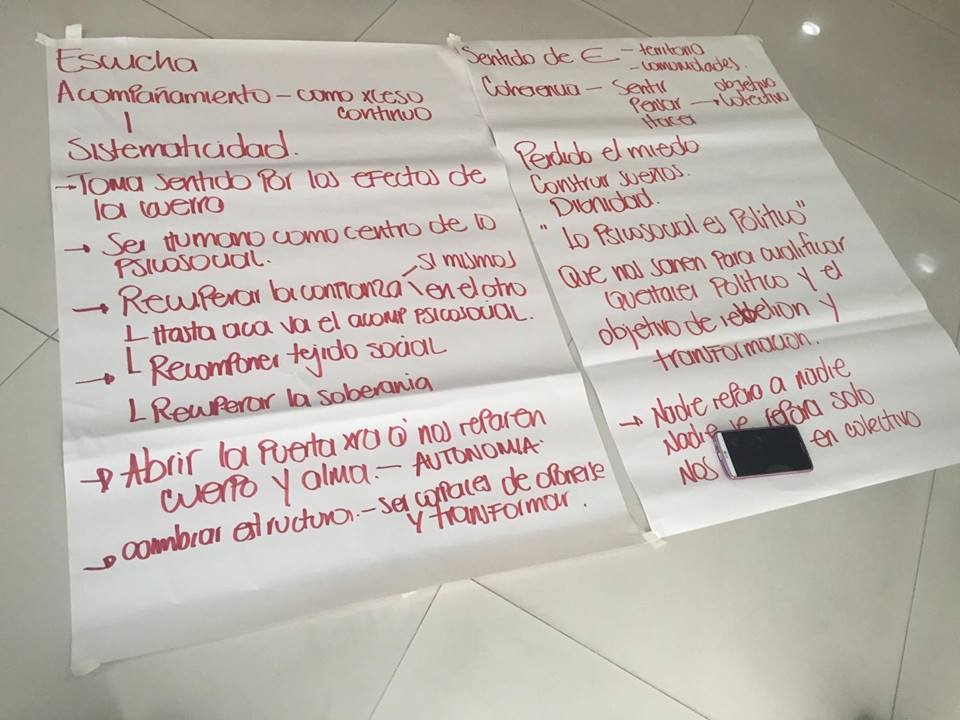 Escucha
Acompañamiento - como xceso
continuo
Sistematicidad.
→ Toma sentido por los efectos de
la guerra
→ Ser Humano como centro de lo
psicosocial.
si mismos
→ Recuperar la confianza en el otro
Hasta aca va el acomp psicosocial.
→ Recomponer tejido social
Recuperar la soberania
→ Abrir la puerta xra q' nos reparen
cuerpo y alma. - AUTONOMIA
→ cambiar estructuras. - ser capaces de oponerse
y transformar.
Sentido de ∈ - territorio
- comunidades.
Coherencia - Sentir objetivo
Pensar → Colectivo
Hacer
Perdido el miedo
Construir sueños.
Dignidad.
"Lo Psicosocial es Politico"
Que nos sanen para cualificar
Politico y el
objetivo de rebelion y
transformacion.
→ Nadie repara a nadie
Nadie se repara solo
Nos en colectivo